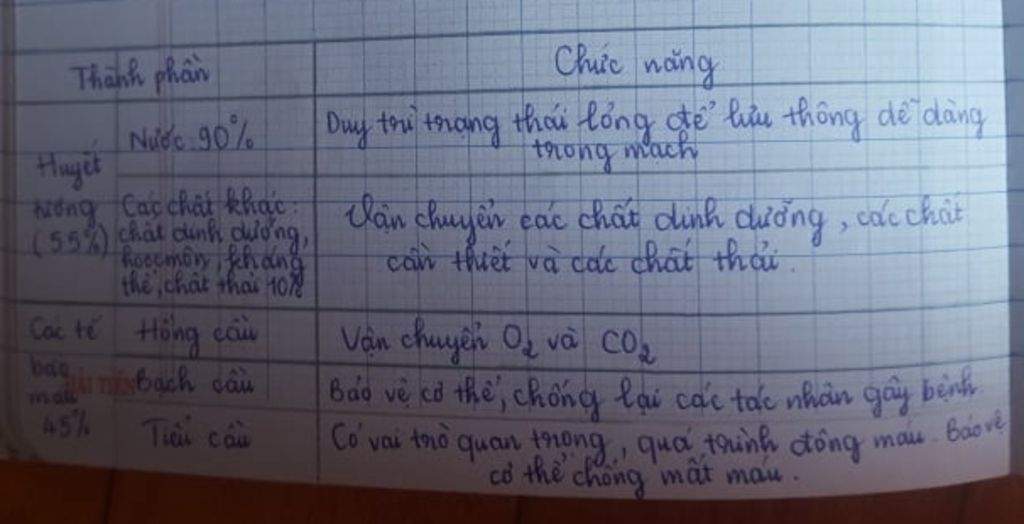 Thành phần
Chức năng
Huyết
tương
(55%)
Nước 90%
Duy trì trạng thái lỏng để lưu thông dễ dàng
trong mạch
Các chất khác:
chất dinh dưỡng,
hoocmôn, kháng
thể, chất thải 10%
Vận chuyển các chất dinh dưỡng, các chất
cần thiết và các chất thải.
Các tế
bào
máu
45%
Hồng cầu
Vận chuyển O₂ và CO₂
HẢI TIẾN
Bạch cầu
Bảo vệ cơ thể, chống lại các tác nhân gây bệnh
Tiểu cầu
Có vai trò quan trọng, quá trình đông máu. Bảo vệ
cơ thể chống mất máu.